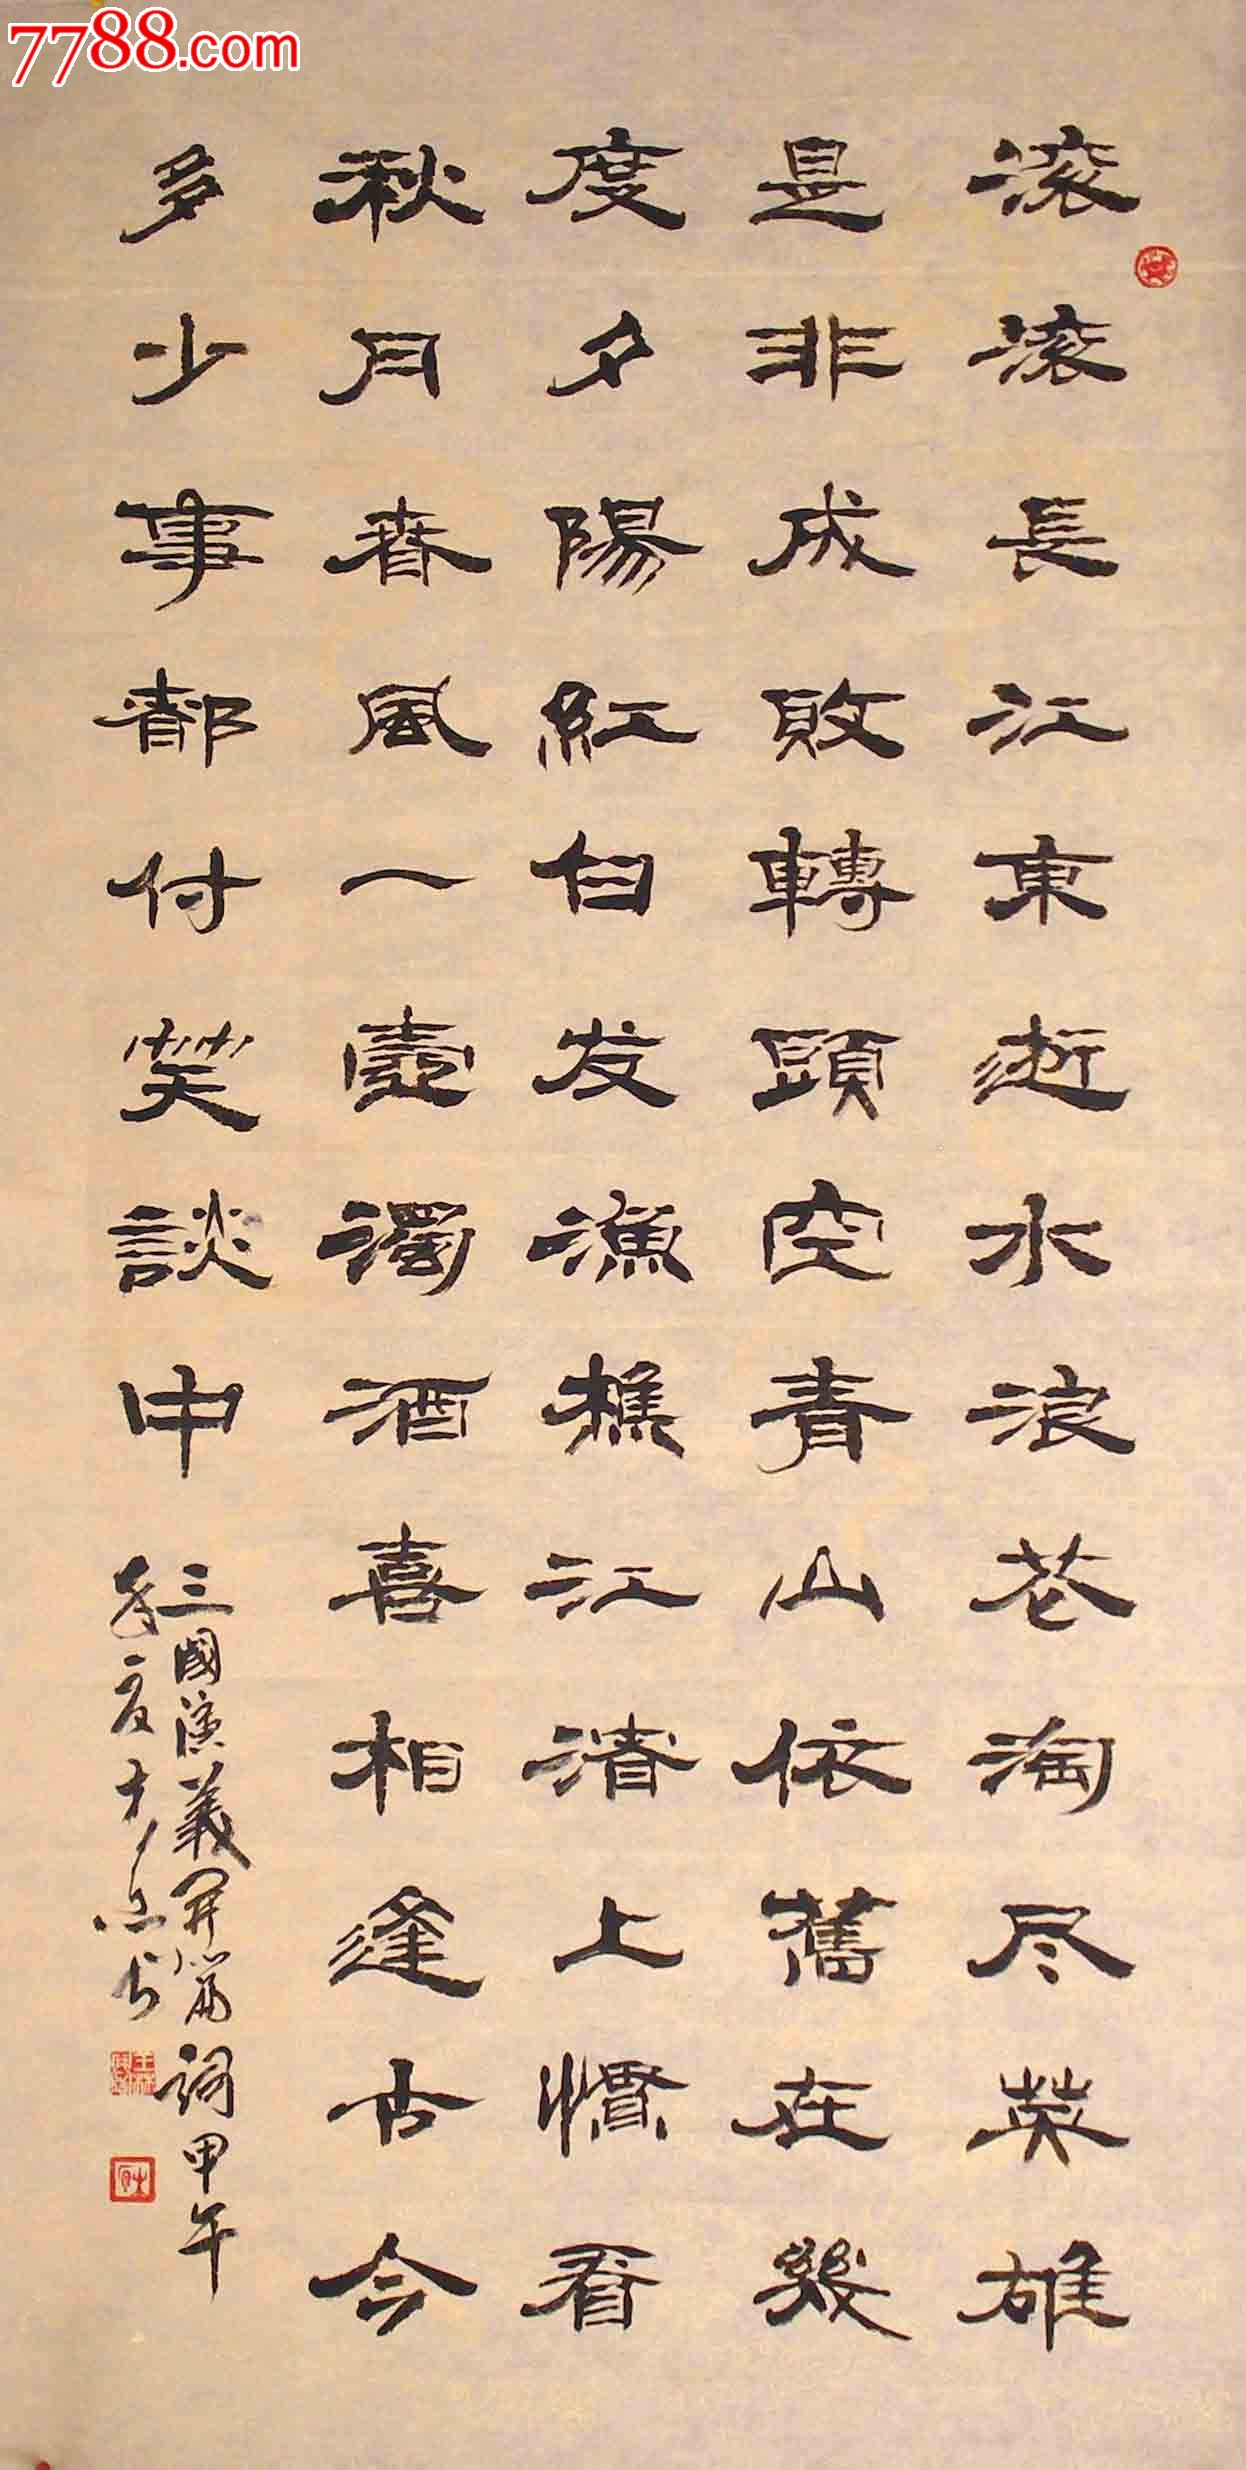 7788.com
滚滚長江東逝水浪花淘尽英雄
是非成敗轉頭空青山依舊在幾
度夕陽紅白发漁樵江渚上慣看
秋月春風一壺濁酒喜相逢古今
多少事都付笑談中
三國演義開篇詞甲午